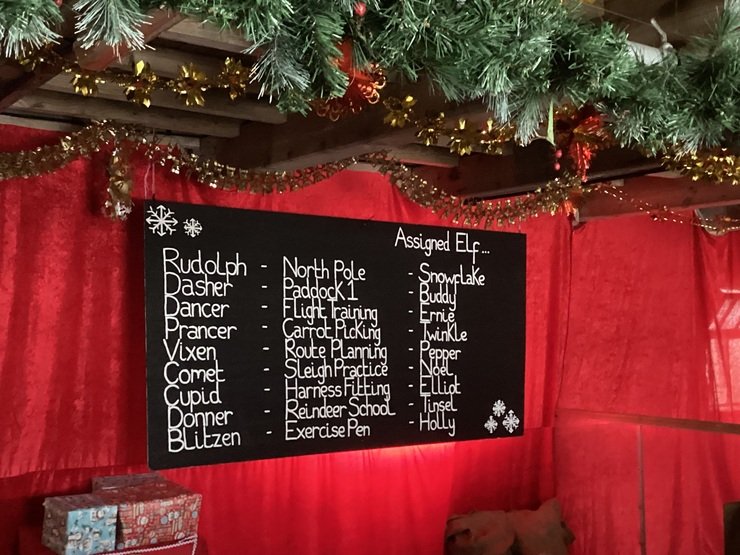 Assigned Elf...
Rudolph - North Pole - Snowflake
Dasher - Paddock 1 - Buddy
Dancer - Flight Training - Ernie
Prancer - Carrot Picking - Twinkle
Vixen - Route Planning - Pepper
Comet - Sleigh Practice - Noel
Cupid - Harness Fitting - Elliot
Donner - Reindeer School - Tinsel
Blitzen - Exercise Pen - Holly